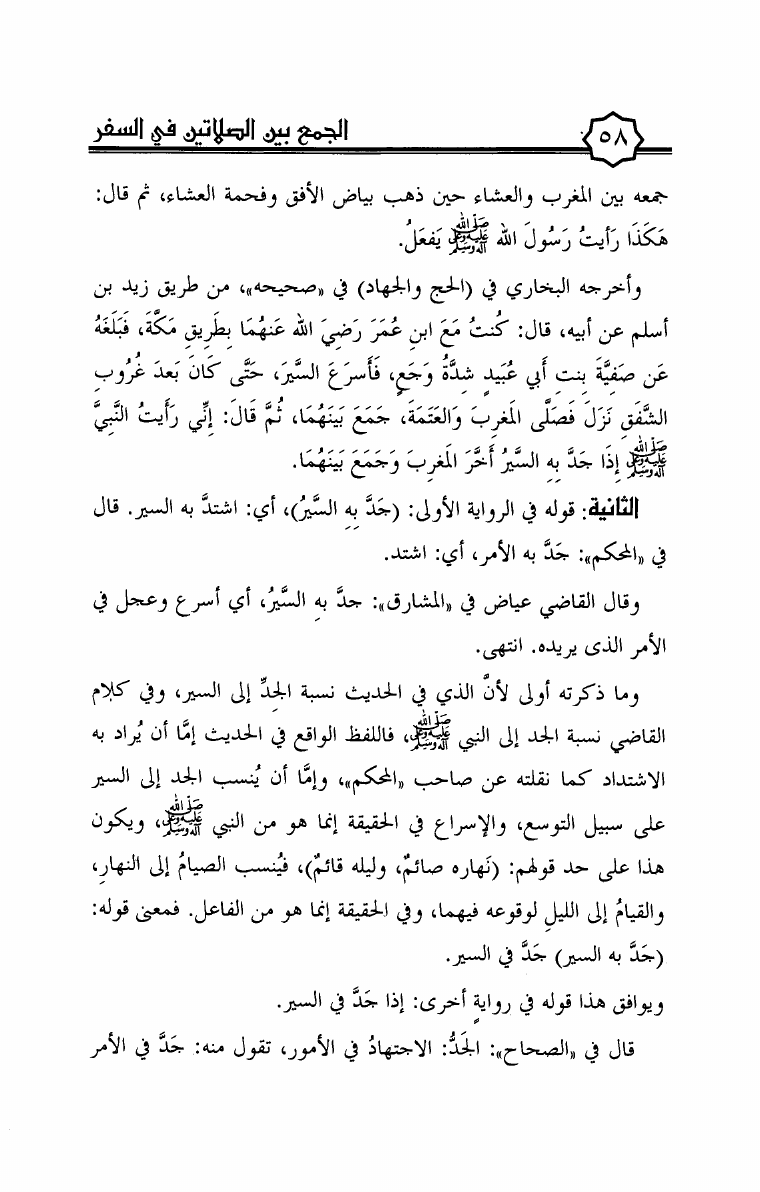 ٥٨
الجمع بين الصلاتين في السفر
جمعه بين المغرب والعشاء حين ذهب بياض الأفق وفحمة العشاء، ثم قال:
هَكَذَا رَأَيتُ رَسُولَ الله ﷺ يَفعَلُ.
وأخرجه البخاري في (الحج والجهاد) في «صحيحه»، من طريق زيد بن
أسلم عن أبيه، قال: كُنتُ مَعَ ابنِ عُمَرَ رَضِيَ الله عَنهُمَا بِطَرِيقِ مَكَّةَ، فَبَلَغَهُ
عَن صَفِيَّةَ بِنتِ أَبي عُبَيدٍ شِدَّةُ وَجَعٍ، فَأَسرَعَ السَّيرَ، حَتَّى كَانَ بَعدَ غُرُوبِ
الشَّفَقِ نَزَلَ فَصَلَّى المَغرِبَ وَالعَتَمَةَ، جَمَعَ بَينَهُمَا، ثُمَّ قَالَ: إِنِّي رَأَيتُ النَّبِيَّ
ﷺ إِذَا جَدَّ بِهِ السَّيرُ أَخَّرَ المَغرِبَ وَجَمَعَ بَينَهُمَا.
الثانية: قوله في الرواية الأولى: (جَدَّ بِهِ السَّيرُ)، أي: اشتدَّ به السير. قال
في «المحكم»: جَدَّ به الأمر، أي: اشتد.
وقال القاضي عياض في «المشارق»: جدَّ بهِ السَّيرُ، أي أسرع وعجل في
الأمر الذى يريده. انتهى.
وما ذكرته أولى لأنَّ الذي في الحديث نسبة الجِدِّ إلى السير، وفي كلام
القاضي نسبة الجد إلى النبي ﷺ، فاللفظ الواقع في الحديث إمَّا أن يُراد به
الاشتداد كما نقلته عن صاحب «المحكم»، وإمَّا أن يُنسب الجد إلى السير
على سبيل التوسع، والإسراع في الحقيقة إنما هو من النبي ﷺ، ويكون
هذا على حد قولهم: (نَهاره صائمٌ، وليله قائمٌ)، فيُنسب الصيامُ إلى النهارِ،
والقيامُ إلى الليلِ لوقوعه فيهما، وفي الحقيقة إنما هو من الفاعل. فمعنى قوله:
(جَدَّ به السير) جَدَّ في السير.
ويوافق هذا قوله في روايةٍ أخرى: إذا جَدَّ في السير.
قال في «الصحاح»: الجَدُّ: الاجتهادُ في الأمور، تقول منه: جَدَّ في الأمر